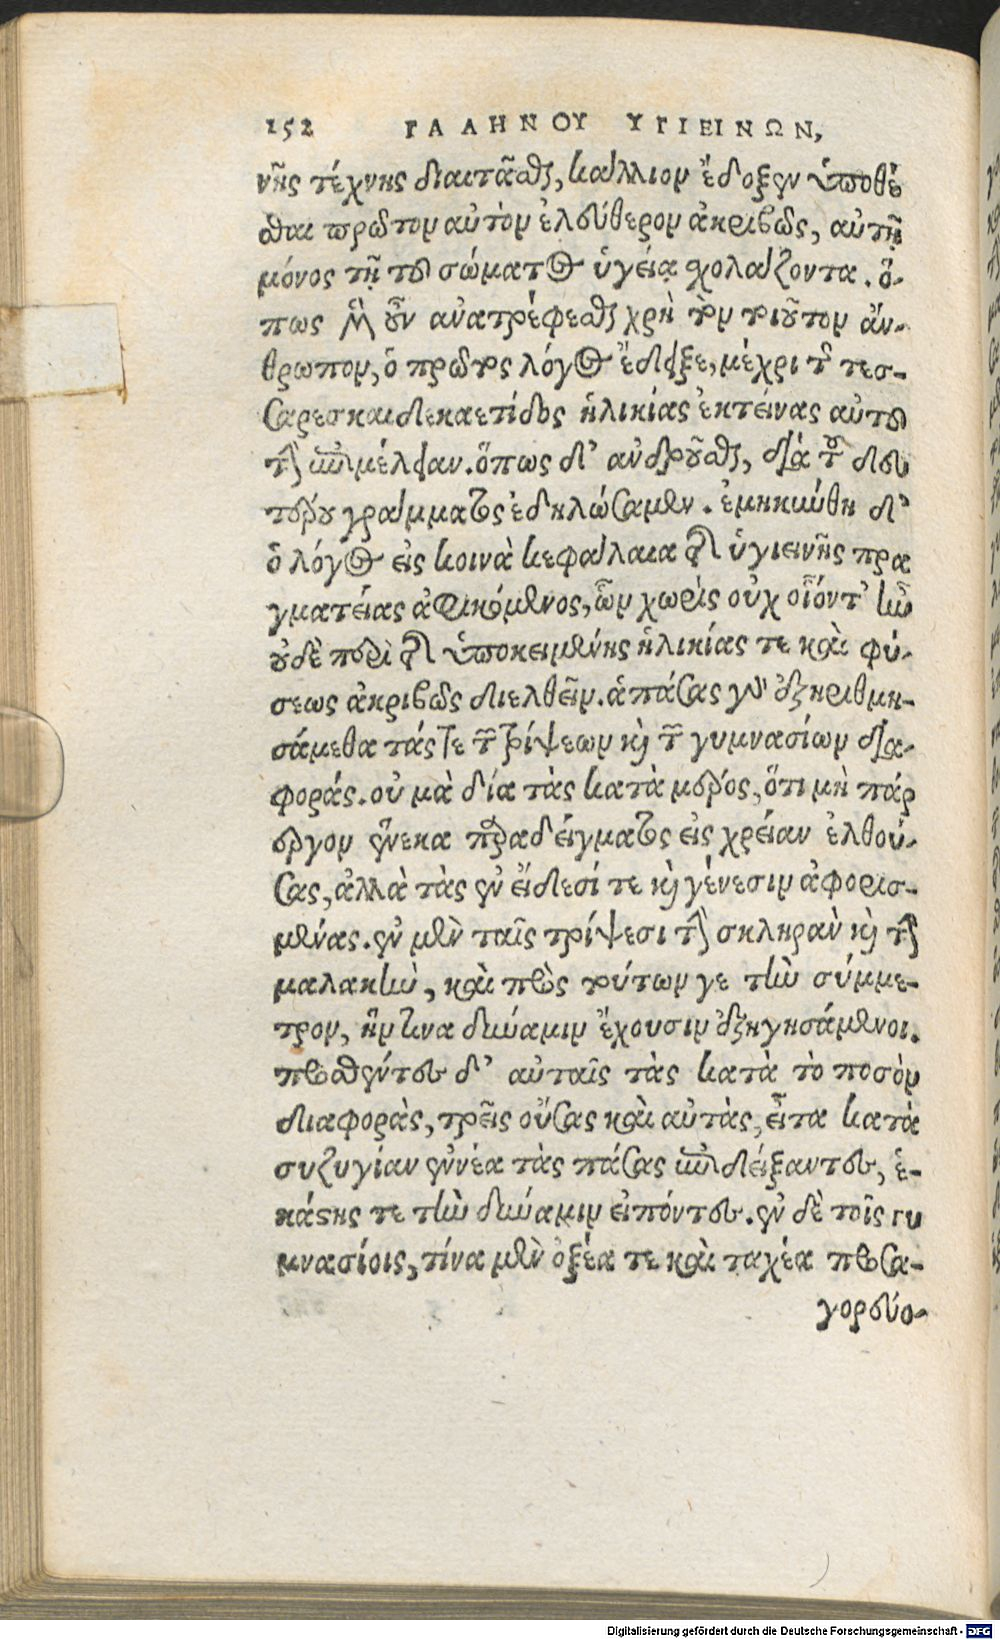 152 ΓΑΛΗΝΟΥ ΥΓΙΕΙΝΩΝ,
νῆς τέχνης διαιτᾶσθαι, κάλλιον ἔδοξεν ὑποθέ
σθαι πρῶτον αὐτὸν ἐλεύθερον ἀκριβῶς, αὐτῇ
μόνος τῇ τοῦ σώματος ὑγείᾳ σχολάζοντα. ὅ-
πως μὲν οὖν ἀνατρέφεσθαι χρὴ τὸν τοιοῦτον ἄν-
θρωπον, ὁ πρῶτος λόγος ἔδειξε, μέχρι τῆς τεσ-
σαρεσκαιδεκαετίδος ἡλικίας ἐκτείνας αὐτοῦ
τὴν ἐπιμέλειαν. ὅπως δ' ἀνδροῦσθαι, διὰ τοῦ δευ
τέρου γράμματος ἐδηλώσαμεν. ἐμηκύνθη δ'
ὁ λόγος εἰς κοινὰ κεφάλαια τῆς ὑγιεινῆς πρα
γματείας ἀφικόμενος, ὧν χωρὶς οὐχ οἷόντ' ἦν
οὐδὲ περὶ τῆς ὑποκειμένης ἡλικίας τε καὶ φύ-
σεως ἀκριβῶς διελθεῖν. ἁπάσας γοῦν ἐξηριθμη-
σάμεθα τάς τε τῶν τρίψεων καὶ τῶν γυμνασίων δια-
φοράς. οὐ μὰ δία τὰς κατὰ μέρος, ὅτι μὴ πάρ
εργον ἕνεκα παραδείγματος εἰς χρείαν ἐλθού-
σας, ἀλλὰ τὰς ἐν εἴδεσί τε καὶ γένεσιν ἀφορισ-
μένας. ἐν μὲν ταῖς τρίψεσι τὴν σκληρὰν καὶ τὴν
μαλακὴν, καὶ πρὸς τούτων γε τὴν σύμμε-
τρον, ἥν τινα δύναμιν ἔχουσιν ἐξηγησάμενοι.
προσθέντες δ' αὐταῖς τὰς κατὰ τὸ ποσὸν
διαφορὰς, τρεῖς οὔσας καὶ αὐτὰς, εἶτα κατὰ
συζυγίαν ἐννέα τὰς πάσας ἐπιδείξαντες, ἑ-
κάστης τε τὴν δύναμιν εἰπόντες. ἐν δὲ τοῖς γυ
μνασίοις, τίνα μὲν ὀξέα τε καὶ ταχέα προσα-
γορευο-
Digitalisierung gefördert durch die Deutsche Forschungsgemeinschaft - DFG